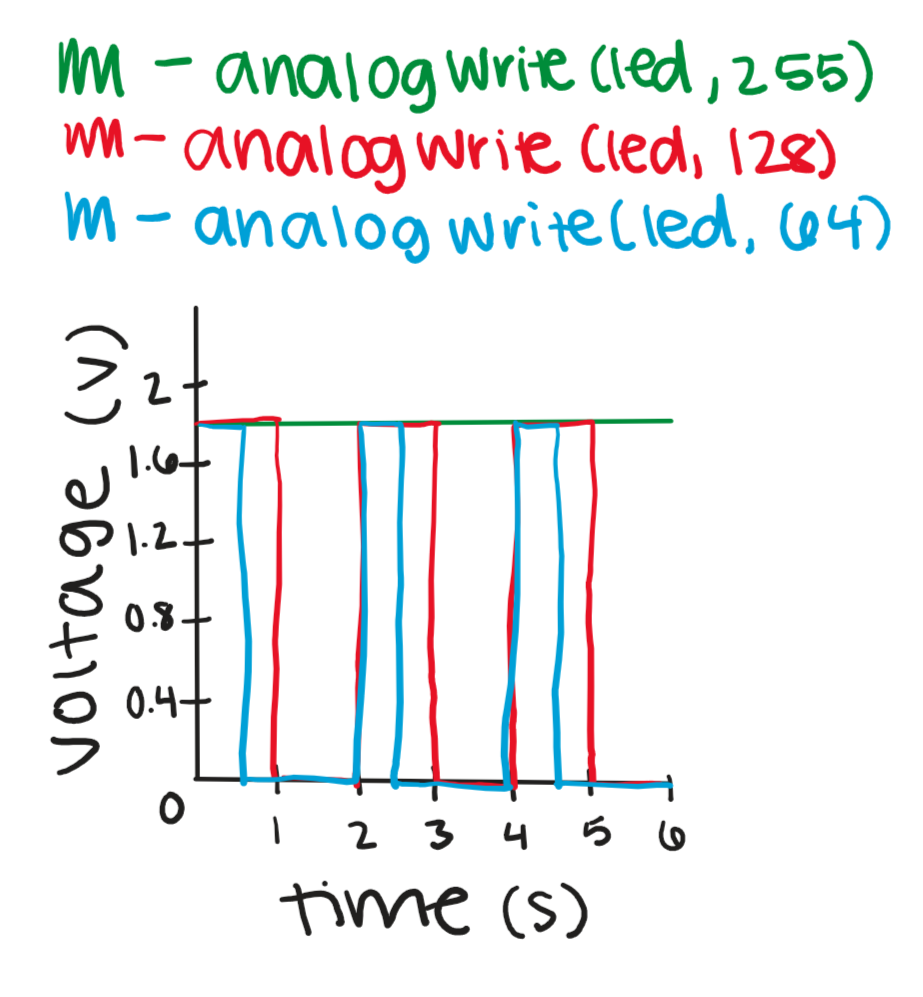 m - analogwrite (led, 255)
m - analogwrite (led, 128)
m - analogwrite (led, 64)
voltage (v)
2
1.6
1.2
0.8
0.4
0
1 2 3 4 5 6
time (s)